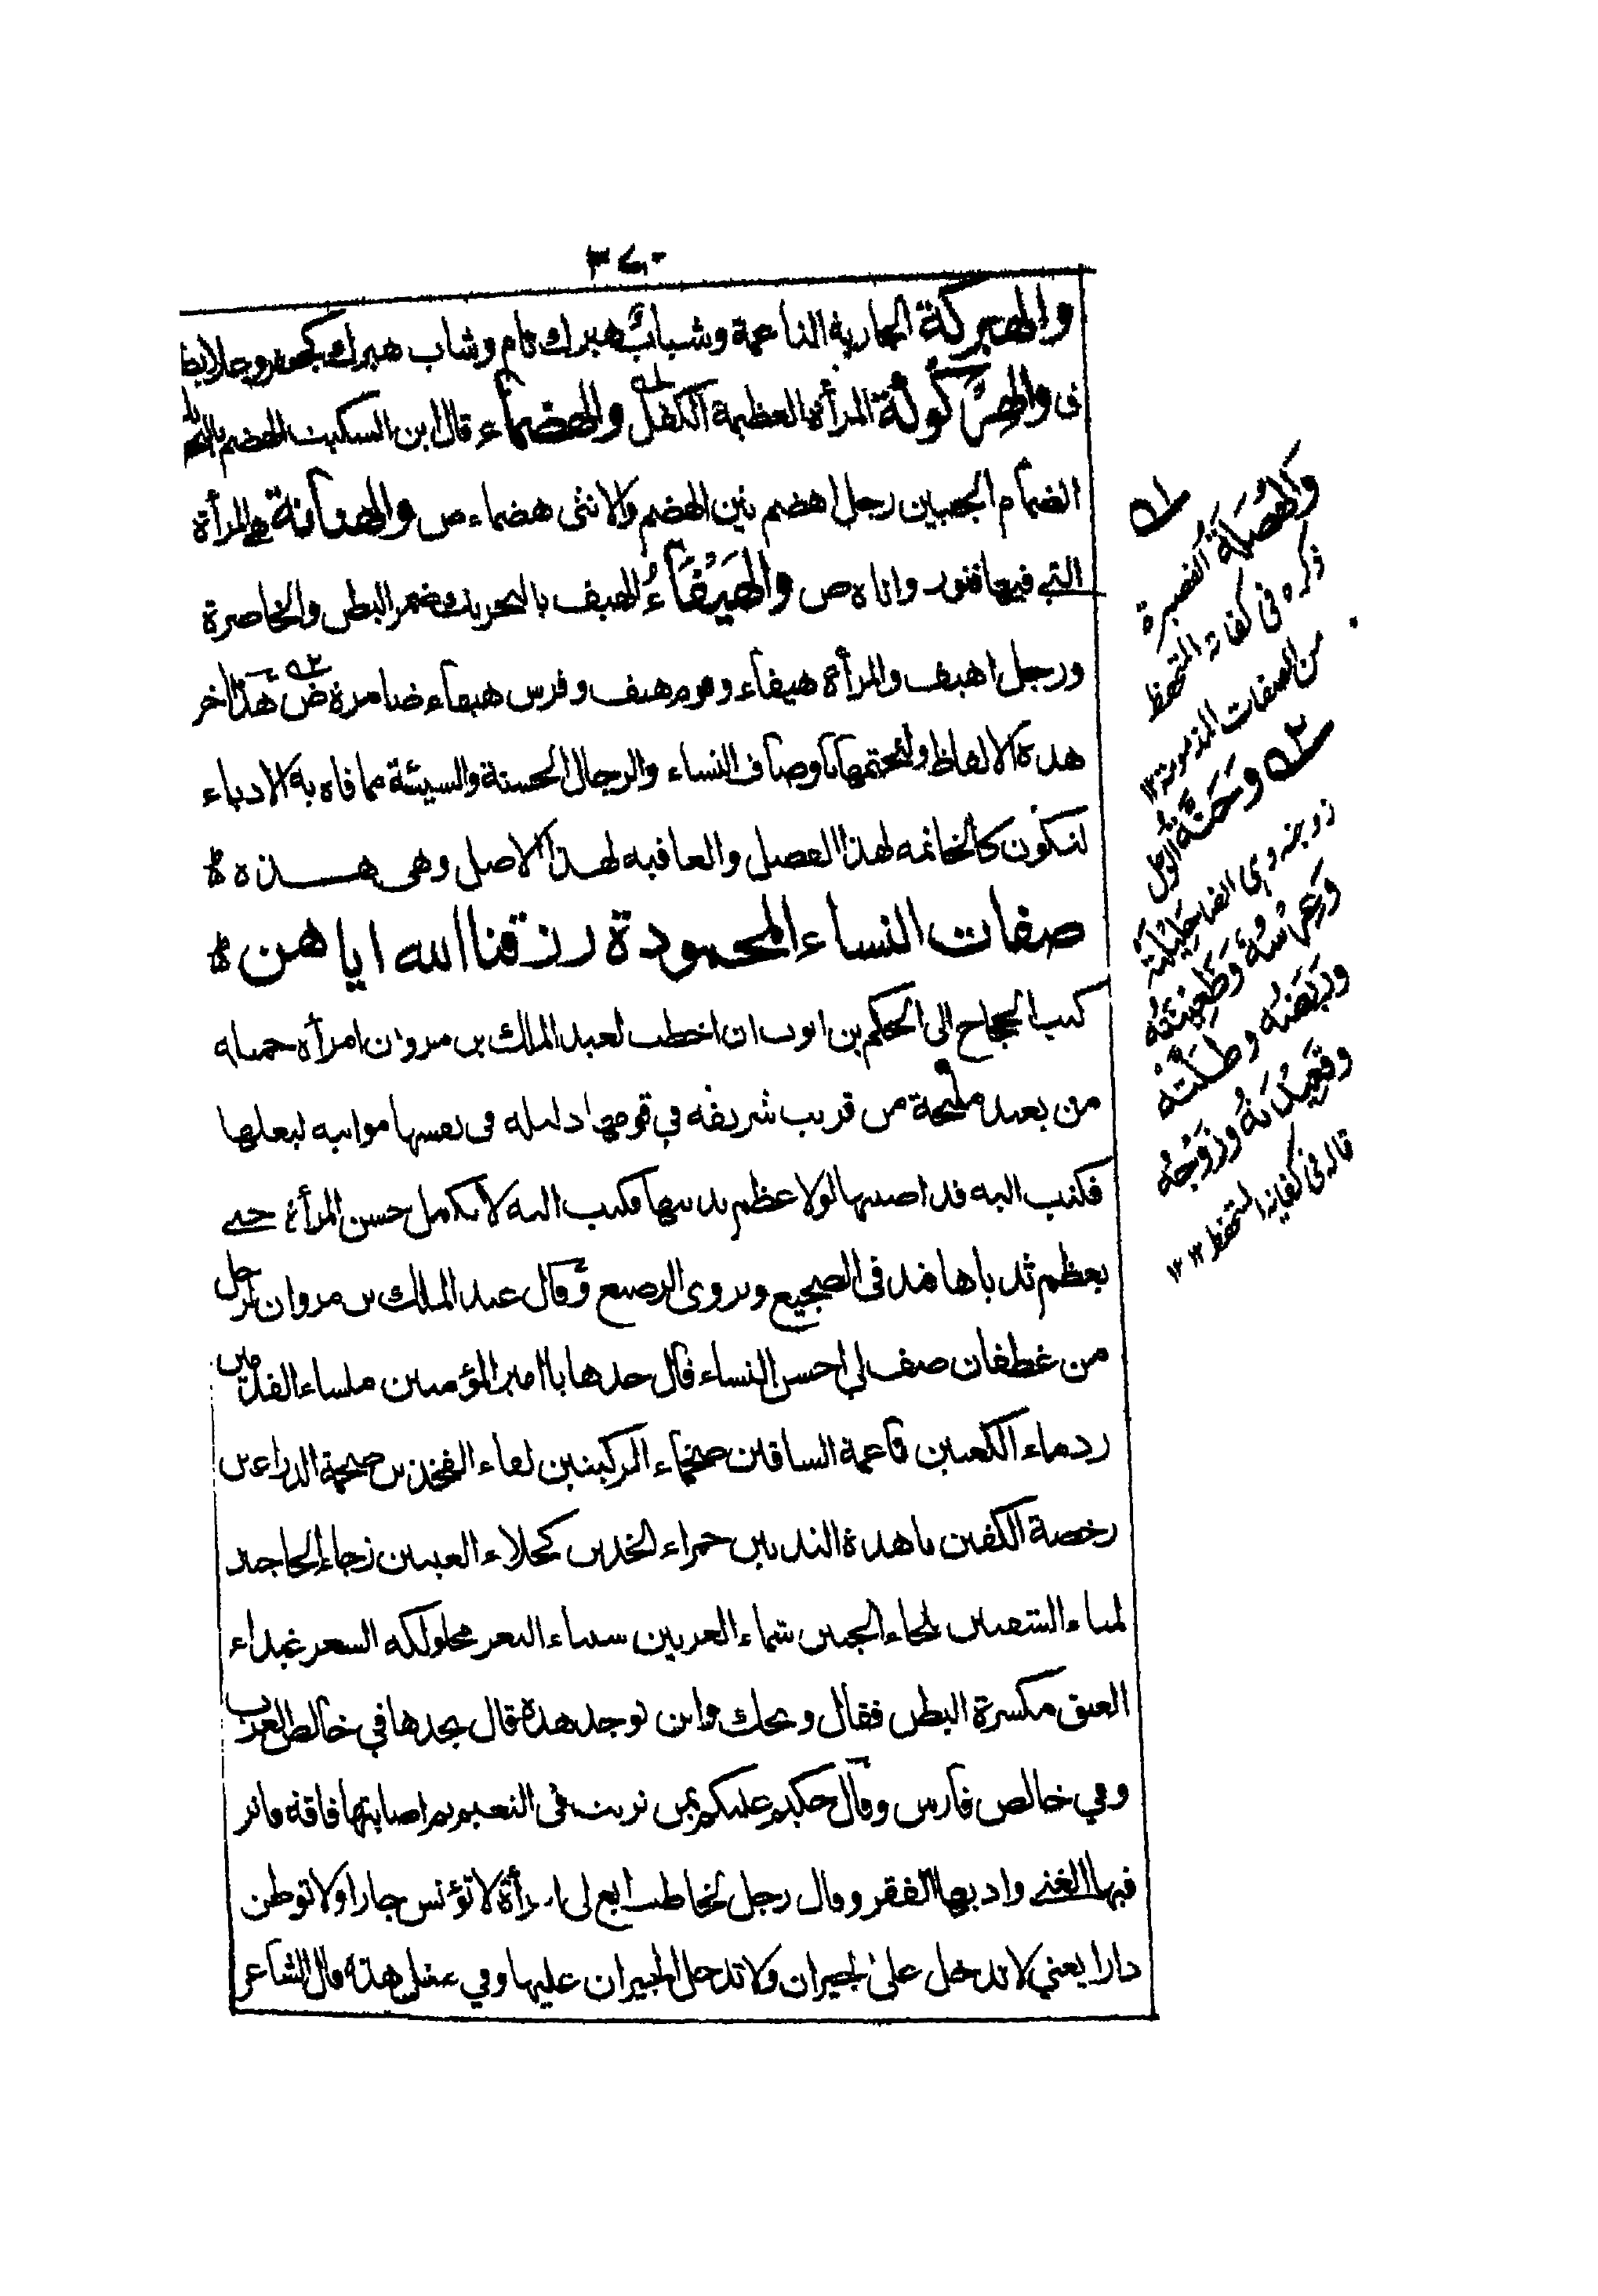 ٣٧٠
والهبركة الجارية الناعمة وشباب هبرك تام وشاب هبرك كجعفر وعلابط
ق والهركولة المرأة العظيمة الكفل والهضماء قال ابن السكيت الهضم بالتحريك
انضمام الجنبين رجل اهضم بين الهضم والانثى هضماء ص والهنانة هي المرأة
التي فيها فتور واناة ص والهيفاء الهيف بالتحريك ضمر البطن والخاصرة
ورجل اهيف والمرأة هيفاء وقوم هيف وفرس هيفاء ضامرة ض هذا آخر
هذه الالفاظ ولنختمها باوصاف النساء والرجال الحسنة والسيئة مما فاه به الادباء
لتكون كالخاتمة لهذا الفصل والعاقبة لهذا الاصل وهي هذه
صفات النساء المحمودة رزقنا الله اياهن
كتب الحجاج الى الحكم بن ايوب ان اخطب لعبد الملك بن مروان امرأة جميلة
من بعيد مليحة من قريب شريفة في قومها دليلة في نفسها مواتية لبعلها
فكتب اليه قد اصبتها لولا عظم ثدييها فكتب اليه لا يكمل حسن المرأة حتى
يعظم ثدياها فتدفئ الضجيع وتروى الرضيع وقال عبد الملك بن مروان لرجل
من غطفان صف لي احسن النساء قال خذها يا امير المؤمنين ملساء القدمين
ردماء الكعبين ناعمة الساقين ضخماء الركبتين لفاء الفخذين ضخمة الذراعين
رخصة الكفين ناهدة الثديين حمراء الخدين كحلاء العينين زجاء الحاجبين
لمياء الشفتين بلجاء الجبين شماء العرنين شنباء الثغر محلولكة الشعر غيداء
العنق مكسرة البطن فقال ويحك واين توجد هذه قال تجدها في خالص العرب
وفي خالص فارس وقال حكيم عليكم بمن تربت في النعيم ثم اصابتها فاقة فاثر
فيها الغنى وادبها الفقر وقال رجل لخاطب ابغ لي امرأة لا تؤنس جارا ولا توطن
دارا يعني لا تدخل على الجيران ولا تدخل الجيران عليها وفي مثل هذه قال الشاعر
والهصلة القصيرة
ذكره في كفاية المتحفظ
من الصفات المذمومة ١٢
وحنة الرجل
زوجته وهي ايضا حليلته
وعرسه وظعينته
وربضه وطلته
وقعيدته وزوجه
قاله في كفاية المتحفظ ١٢